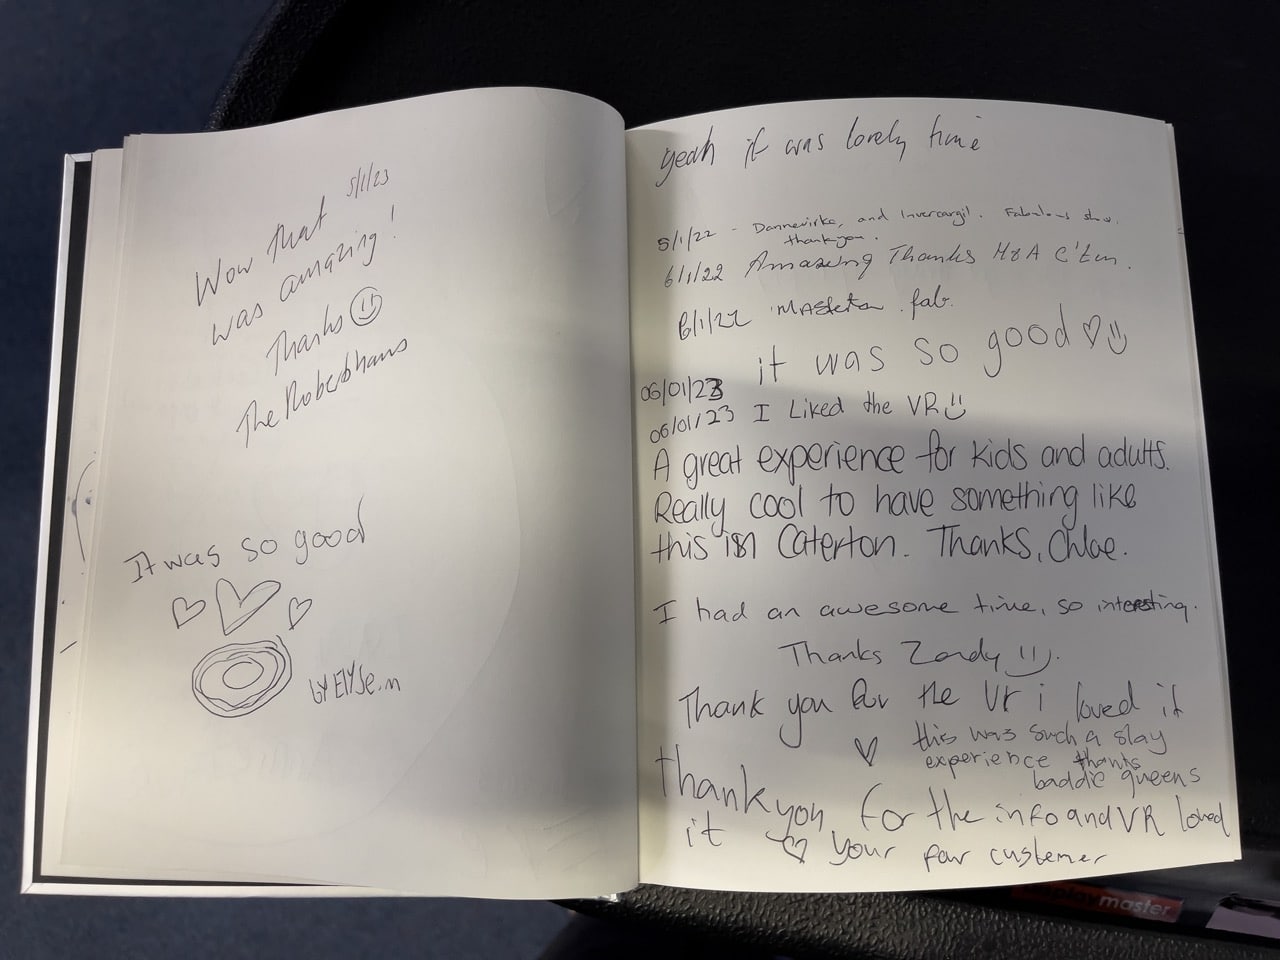 5/1/23
Wow that
was amazing!
Thanks
The
It was so good
by Elyse.m
yeah it was lovely time
5/1/22 - Dannevirke, and Invercargil. Fabulous show.
thankyou.
6/1/22 Amazing Thanks H&A C'ton.
6/1/22 Masterton fab.
it was so good
06/01/23
06/01/23 I Liked the VR
A great experience for kids and adults.
Really cool to have something like
this in Caterton. Thanks, Chloe.
I had an awesome time, so interesting.
Thanks
Thank you for the Vr i loved it
this was such a slay
experience thanks
baddie queens
thank you for the info and VR loved
it your fav custemer
master